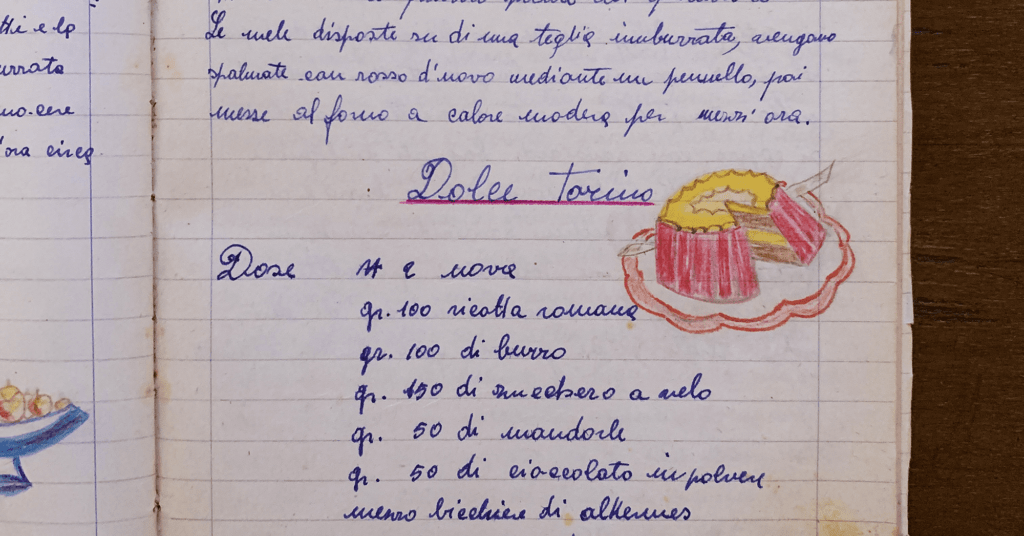 tti e la
urrata
mo-cere
'ora circa
Le mele disposte su di una teglia imburrata, vengono
spalmate con rosso d'uovo mediante un pennello, poi
messe al forno a calore modera per mezz'ora.
Dolce Torino
Dose N 2 uova
gr. 100 ricotta romana
gr. 100 di burro
gr. 150 di zucchero a velo
gr. 50 di mandorle
gr. 50 di cioccolato in polvere
mezzo bicchiere di alkermes